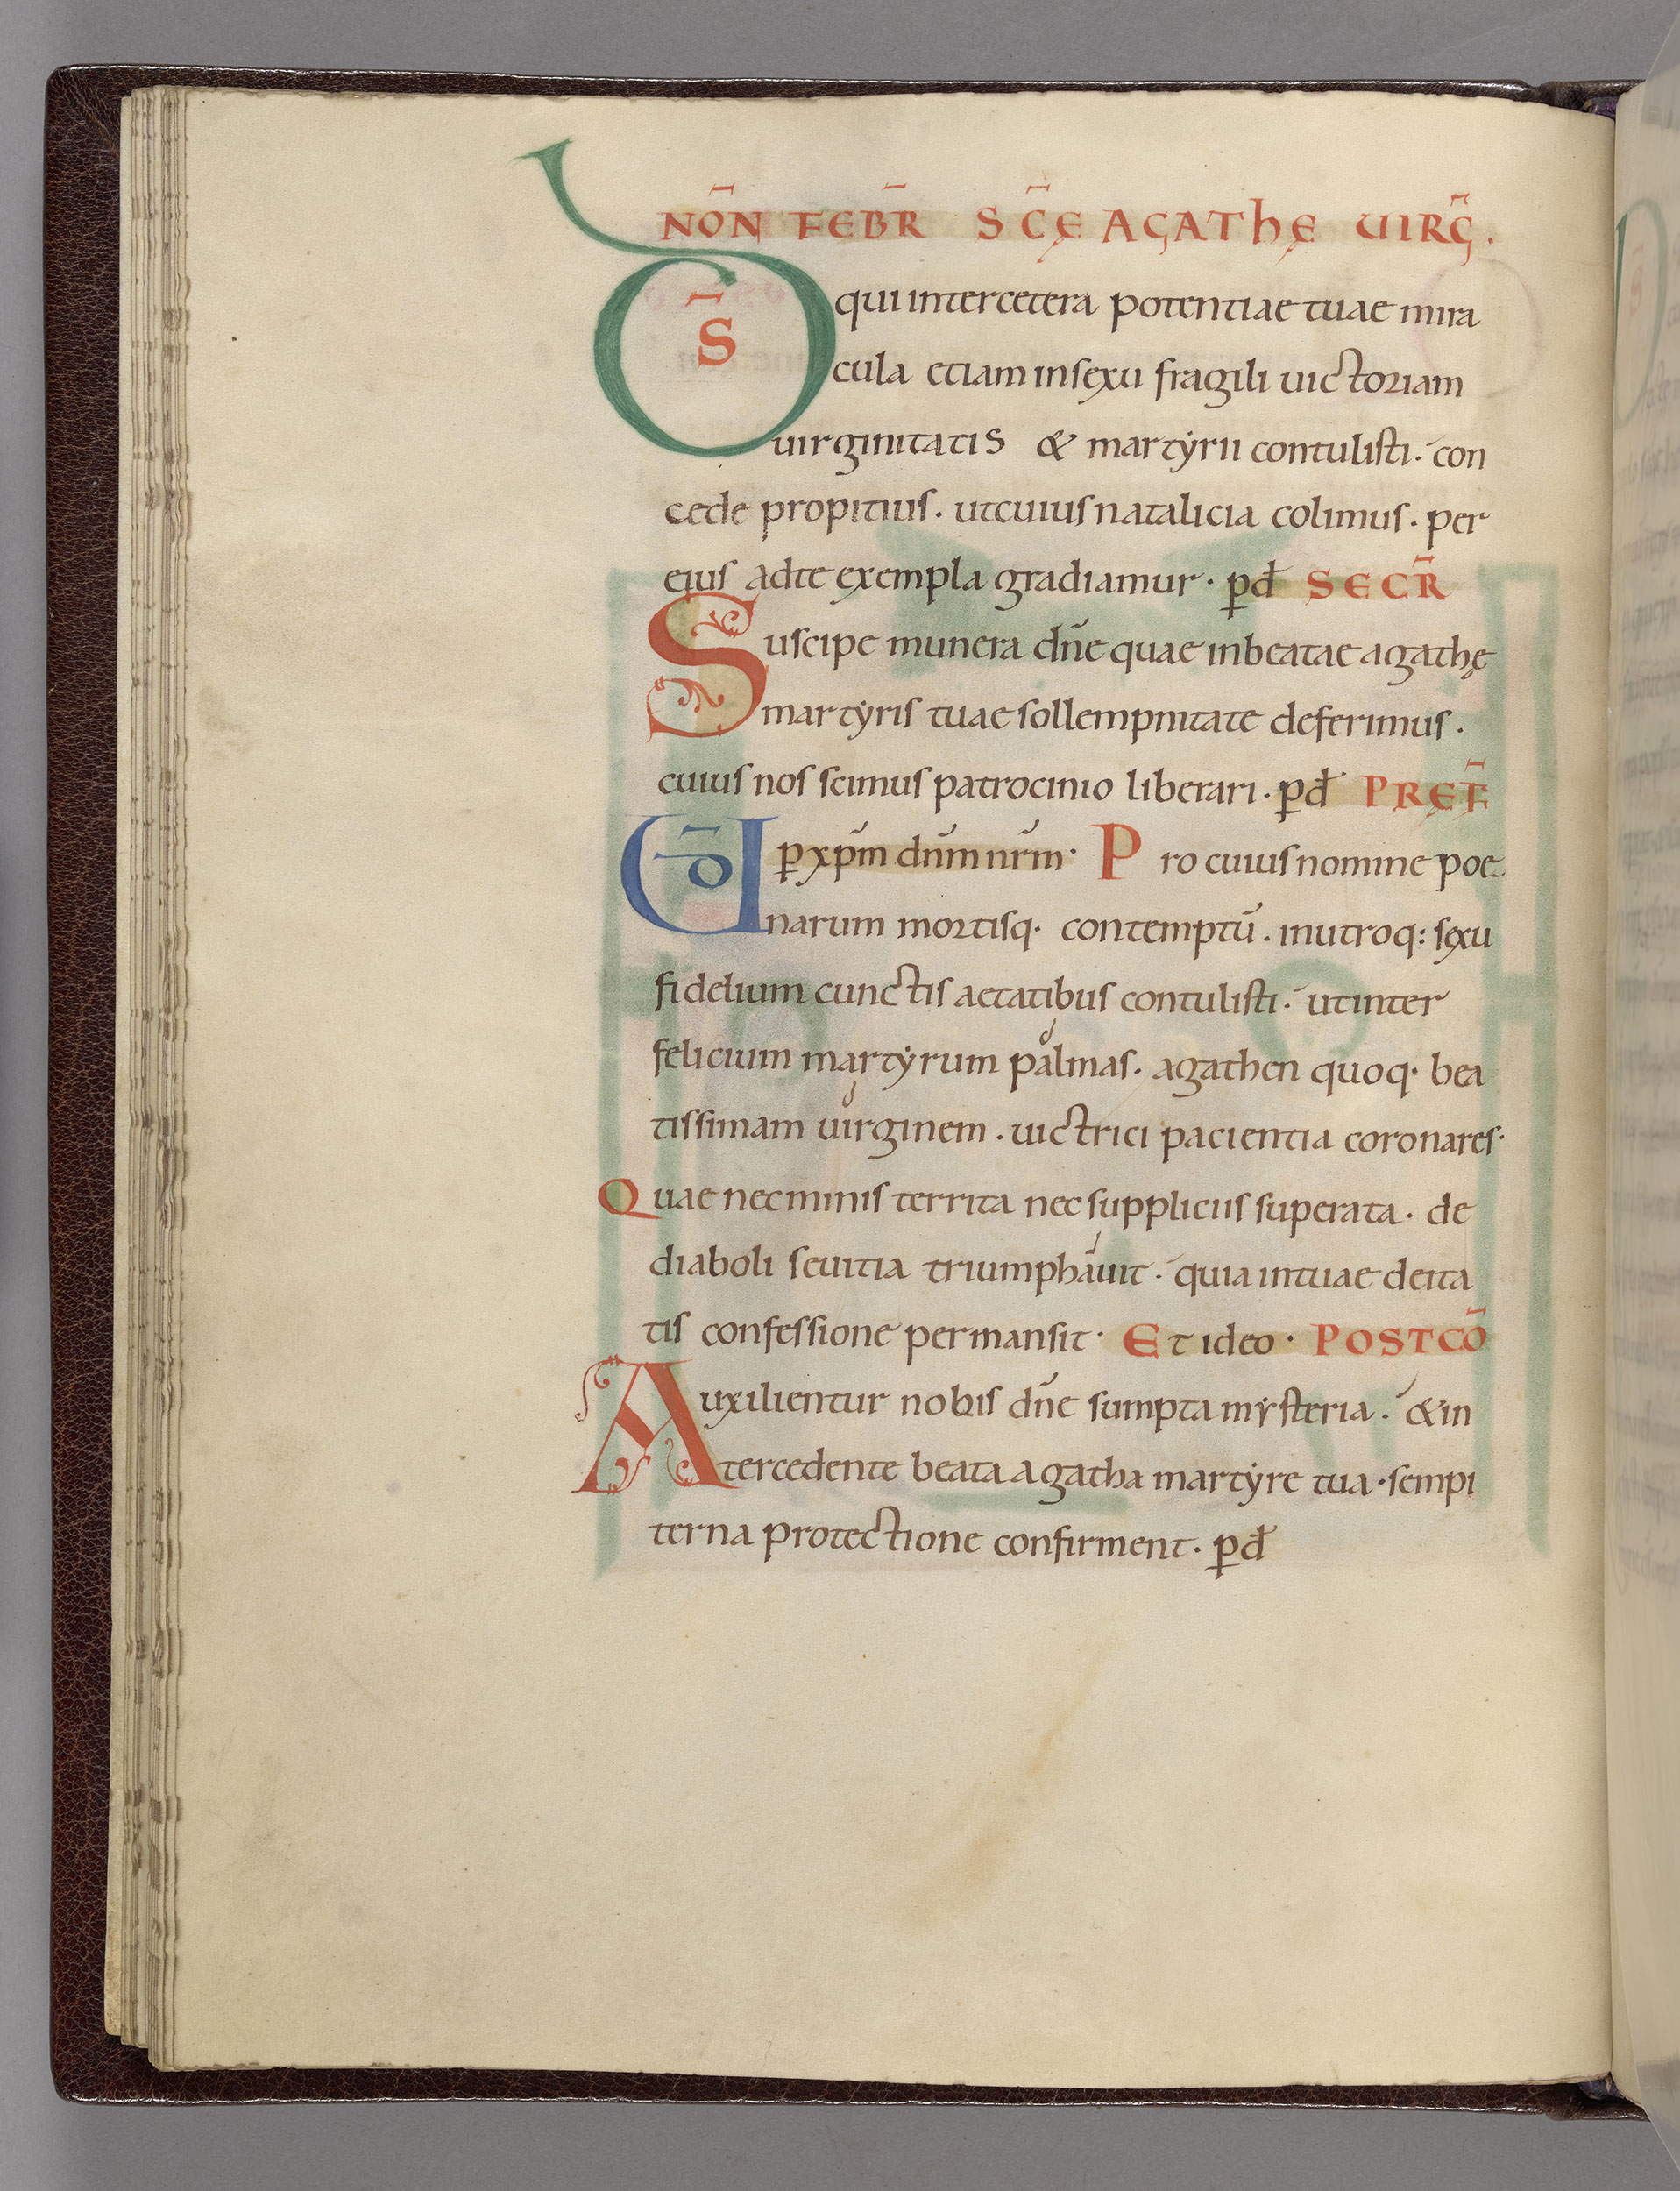 NON̄ FEB̄R SC̄Ę AGATHĘ UIRḠ.
DS̄ qui inter cetera potentiae tuae mira
cula etiam in sexu fragili uictoriam
uirginitatis & martẏrii contulisti. con
cede propitius. ut cuius natalicia colimus. per
eius ad te exempla gradiamur. p̱đ SECR̄
Suscipe munera dn̄e quae in beatae agathę
martẏris tuae sollempnitate deferimus.
cuius nos scimus patrocinio liberari. p̱đ PRĘF̄
UD̄ p̱ xp̄m dn̄m nr̄m. Pro cuius nomine poe
narum mortisq. contemptū. in utroq: sexu
fidelium cunctis aetatibus contulisti. ut inter
felicium martẏrum palmas. agathen quoq. bea
tissimam uirginem. uictrici pacientia coronares.
Quae nec minis territa nec suppliciis superata. de
diaboli seuitia triumphauit. quia in tuae deita
tis confessione permansit. Et ideo. POSTCŌ
Auxilientur nobis dn̄e sumpta mẏsteria. & in
tercedente beata agatha martẏre tua. sempi
terna protectione confirment. p̱đ